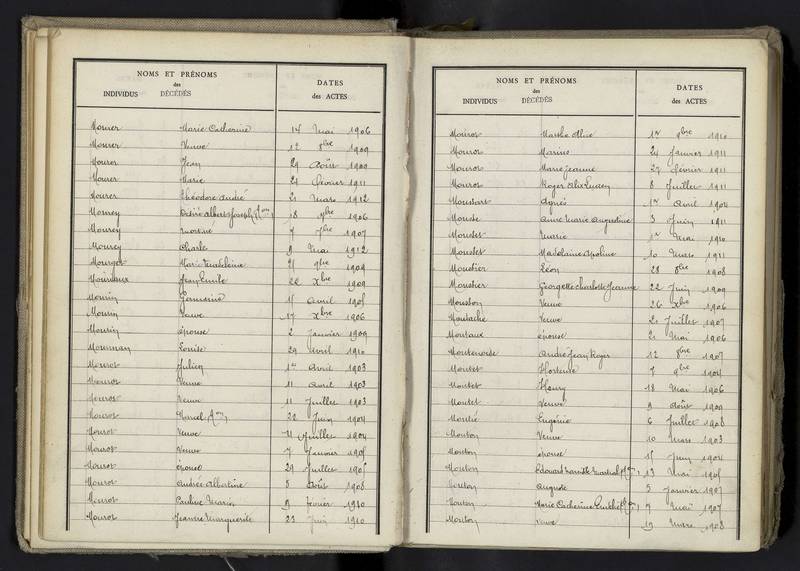 NOMS ET PRÉNOMS
des
INDIVIDUS DÉCÉDÉS
DATES
des ACTES
Mourer Marie Catherine 14 Mai 1906
Mourer Veuve 12 8bre 1909
Mourer Jean 29 Août 1909
Mourer Marie 21 Février 1911
Mourer Théodore André 21 Mars 1912
Mourey Désiré Albert Joseph 18 9bre 1906
Mourey 7 7bre 1907
Mourey Charles 9 Mai 1912
Mourget Marie Madeleine 21 9bre 1909
Jean Emile 22 Xbre 1909
Mourin Germaine 15 Avril 1905
Mourin Veuve 17 Xbre 1906
Mourin épouse 2 Janvier 1909
Mourman Louise 29 Avril 1910
Mourot Julien 1er Avril 1903
Mourot Veuve 11 Avril 1903
Mourot Veuve 11 Juillet 1903
Mourot Marcel 22 Juin 1904
Mourot Veuve Juillet 1904
Mourot Veuve 7 Janvier 1905
Mourot épouse 29 Juillet 1905
Mourot Andrée Albertine 5 Août 1908
Mourot Pauline Marie 9 février 1910
Mourot Jeanne Marguerite 23 Juin 1910
NOMS ET PRÉNOMS
des
INDIVIDUS DÉCÉDÉS
DATES
des ACTES
Mourot Marthe Alice 1er 9bre 1910
Mourot Marius 24 Janvier 1911
Mourot Marie Jeanne 27 Février 1911
Mourot Roger Alix Lucien 8 Juillet 1911
Agnès 1er Avril 1904
Mouste Anne Marie Augustine 3 Juin 1911
Moustet Marie 1er Mai 1910
Moustet Madeleine Apoline 10 Mars 1911
Moustier Léon 28 8bre 1908
Moustier Georgette Charlotte Jeanne 22 Juin 1909
Mouston Veuve 26 Xbre 1906
Moutache Veuve 21 Juillet 1907
Moutaux épouse 21 Mai 1906
André Jean Roger 12 9bre 1907
Moutet Hortense 7 9bre 1904
Moutet Henry 18 Mai 1906
Moutet Veuve 9 Août 1909
Moutié Eugénie 6 Juillet 1908
Mouton Veuve 10 Mars 1903
Mouton épouse 15 Juin 1904
Mouton Edouard 13 Mai 1905
Mouton Auguste 5 Janvier 1907
Mouton Marie Catherine 7 Mai 1907
Mouton Veuve 19 Mars 1908